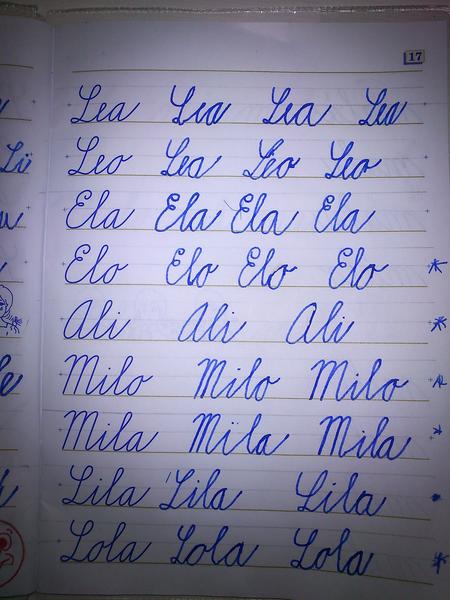 17
Lea Lea Lea Lea
Leo Lea Leo Leo
Ela Ela Ela Ela
Elo Elo Elo Elo
Ali Ali Ali
Milo Milo Milo
Mila Mila Mila
Lila Lila Lila
Lola Lola Lola